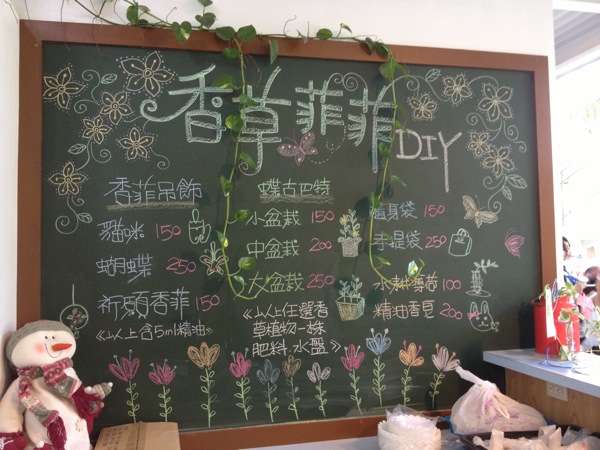 香草菲菲 DIY
香菲吊飾
貓咪 150
蝴蝶 250
祈願香菲 150
《以上含5ml精油》
蝶古巴特
小盆栽 150
中盆栽 200
大盆栽 250
《以上任選香
草植物一株
肥料.水盤》
隨身袋 150
手提袋 250
100
精油香皂 200